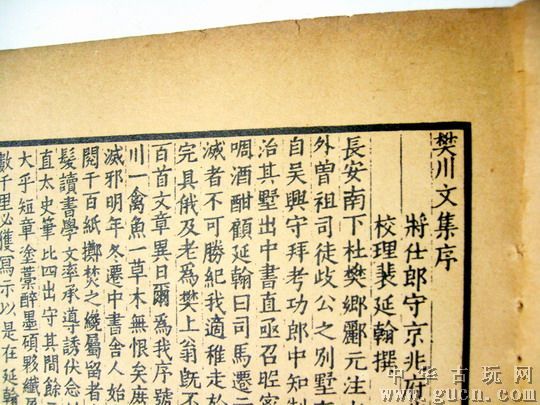 樊川文集序
將仕郎守京兆府
校理裴延翰撰
長安南下杜樊鄉酈元注水
外曾祖司徒岐公之別墅在
自吳興守拜考功郎中知制
治其墅出中書直亟召昵密
啁酒酣顧延翰曰司馬遷云
滅者不可勝紀我適稚走於
完具俄及老為樊上翁既不
百首文章異日爾為我序號
川一禽魚一草木無恨矣庶
滅邪明年冬遷中書舍人始
閱千百紙擲焚之纔屬留者
髮讀書學文率承導誘伏念
直太史筆比四出守其間餘
大乎短章塗藁醉墨碩夥纖
數千里必獲寫示以是在延翰
中华古玩网
www.gucn.com